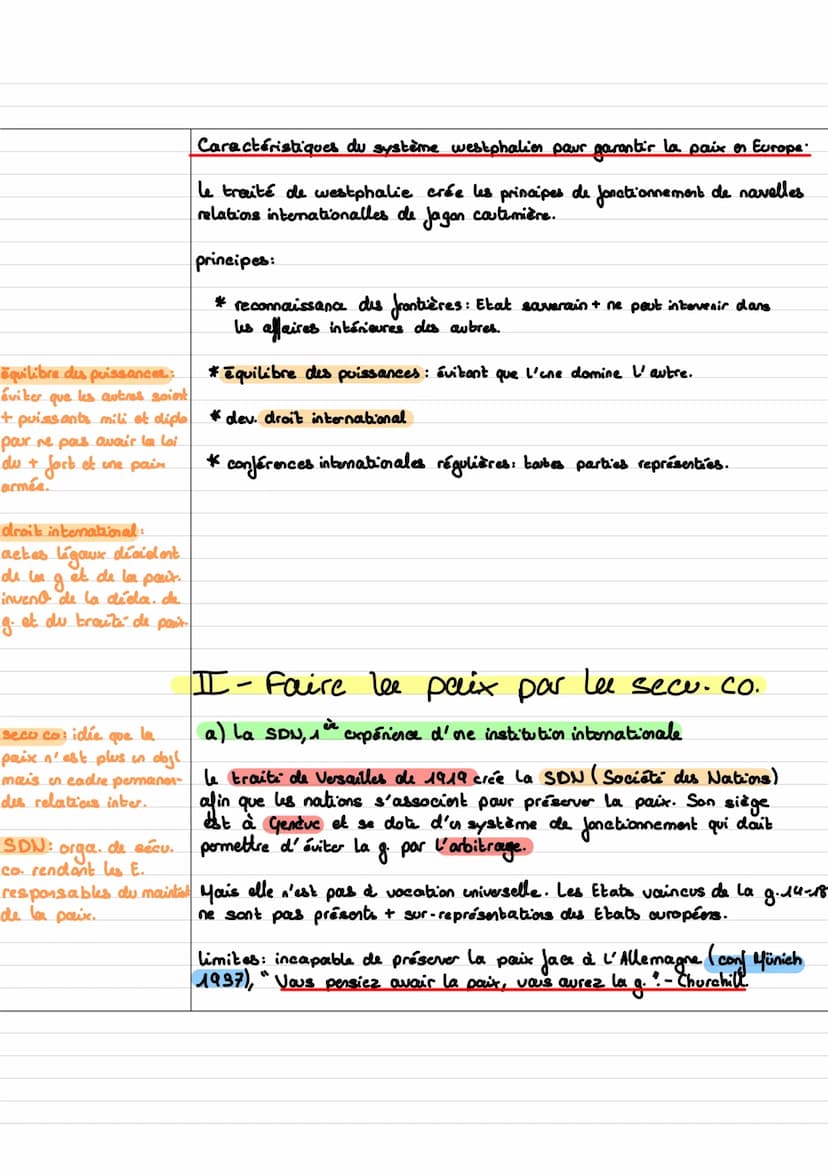 Caractéristiques du système westphalien pour garantir la paix en Europe.
le traité de westphalie crée les principes de fonctionnement de nouvelles
relations internationalles de façon coutumière.
principes:
* reconnaissance des frontières: Etat souverain + ne peut intervenir dans
les affaires intérieures des autres.
* équilibre des puissances : évitant que l'une domine l'autre.
* dev. droit international
* conférences internationales régulières: toutes parties représentées.
équilibre des puissances:
éviter que les autres soient
+ puissants mili et diplo
pour ne pas avoir la loi
du + fort et une paix
armée.
droit international:
actes légaux décident
de la g et de la paix.
de la décla. de
g. et du traité de paix
II - Faire la paix par la secu. co.
a) La SDN, 1ère expérience d'une institution internationale
le traité de Versailles de 1919 crée la SDN (Société des Nations)
afin que les nations s'associent pour préserver la paix. Son siège
est à Genève et se dote d'un système de fonctionnement qui doit
permettre d'éviter la g. par l'arbitrage.
Mais elle n'est pas à vocation universelle. Les Etats vaincus de la g.14-18
ne sont pas présents + sur-représentations des Etats européens.
limites: incapable de préserver la paix face à l'Allemagne (conf Münich
1937), "Vous pensiez avoir la paix, vous aurez la g." - Churchill.
secu co: idée que la
paix n'est plus un objf
mais un cadre permanen-
des relations inter.
SDN: orga. de sécu.
co. rendant les E.
responsables du maintien
de la paix.